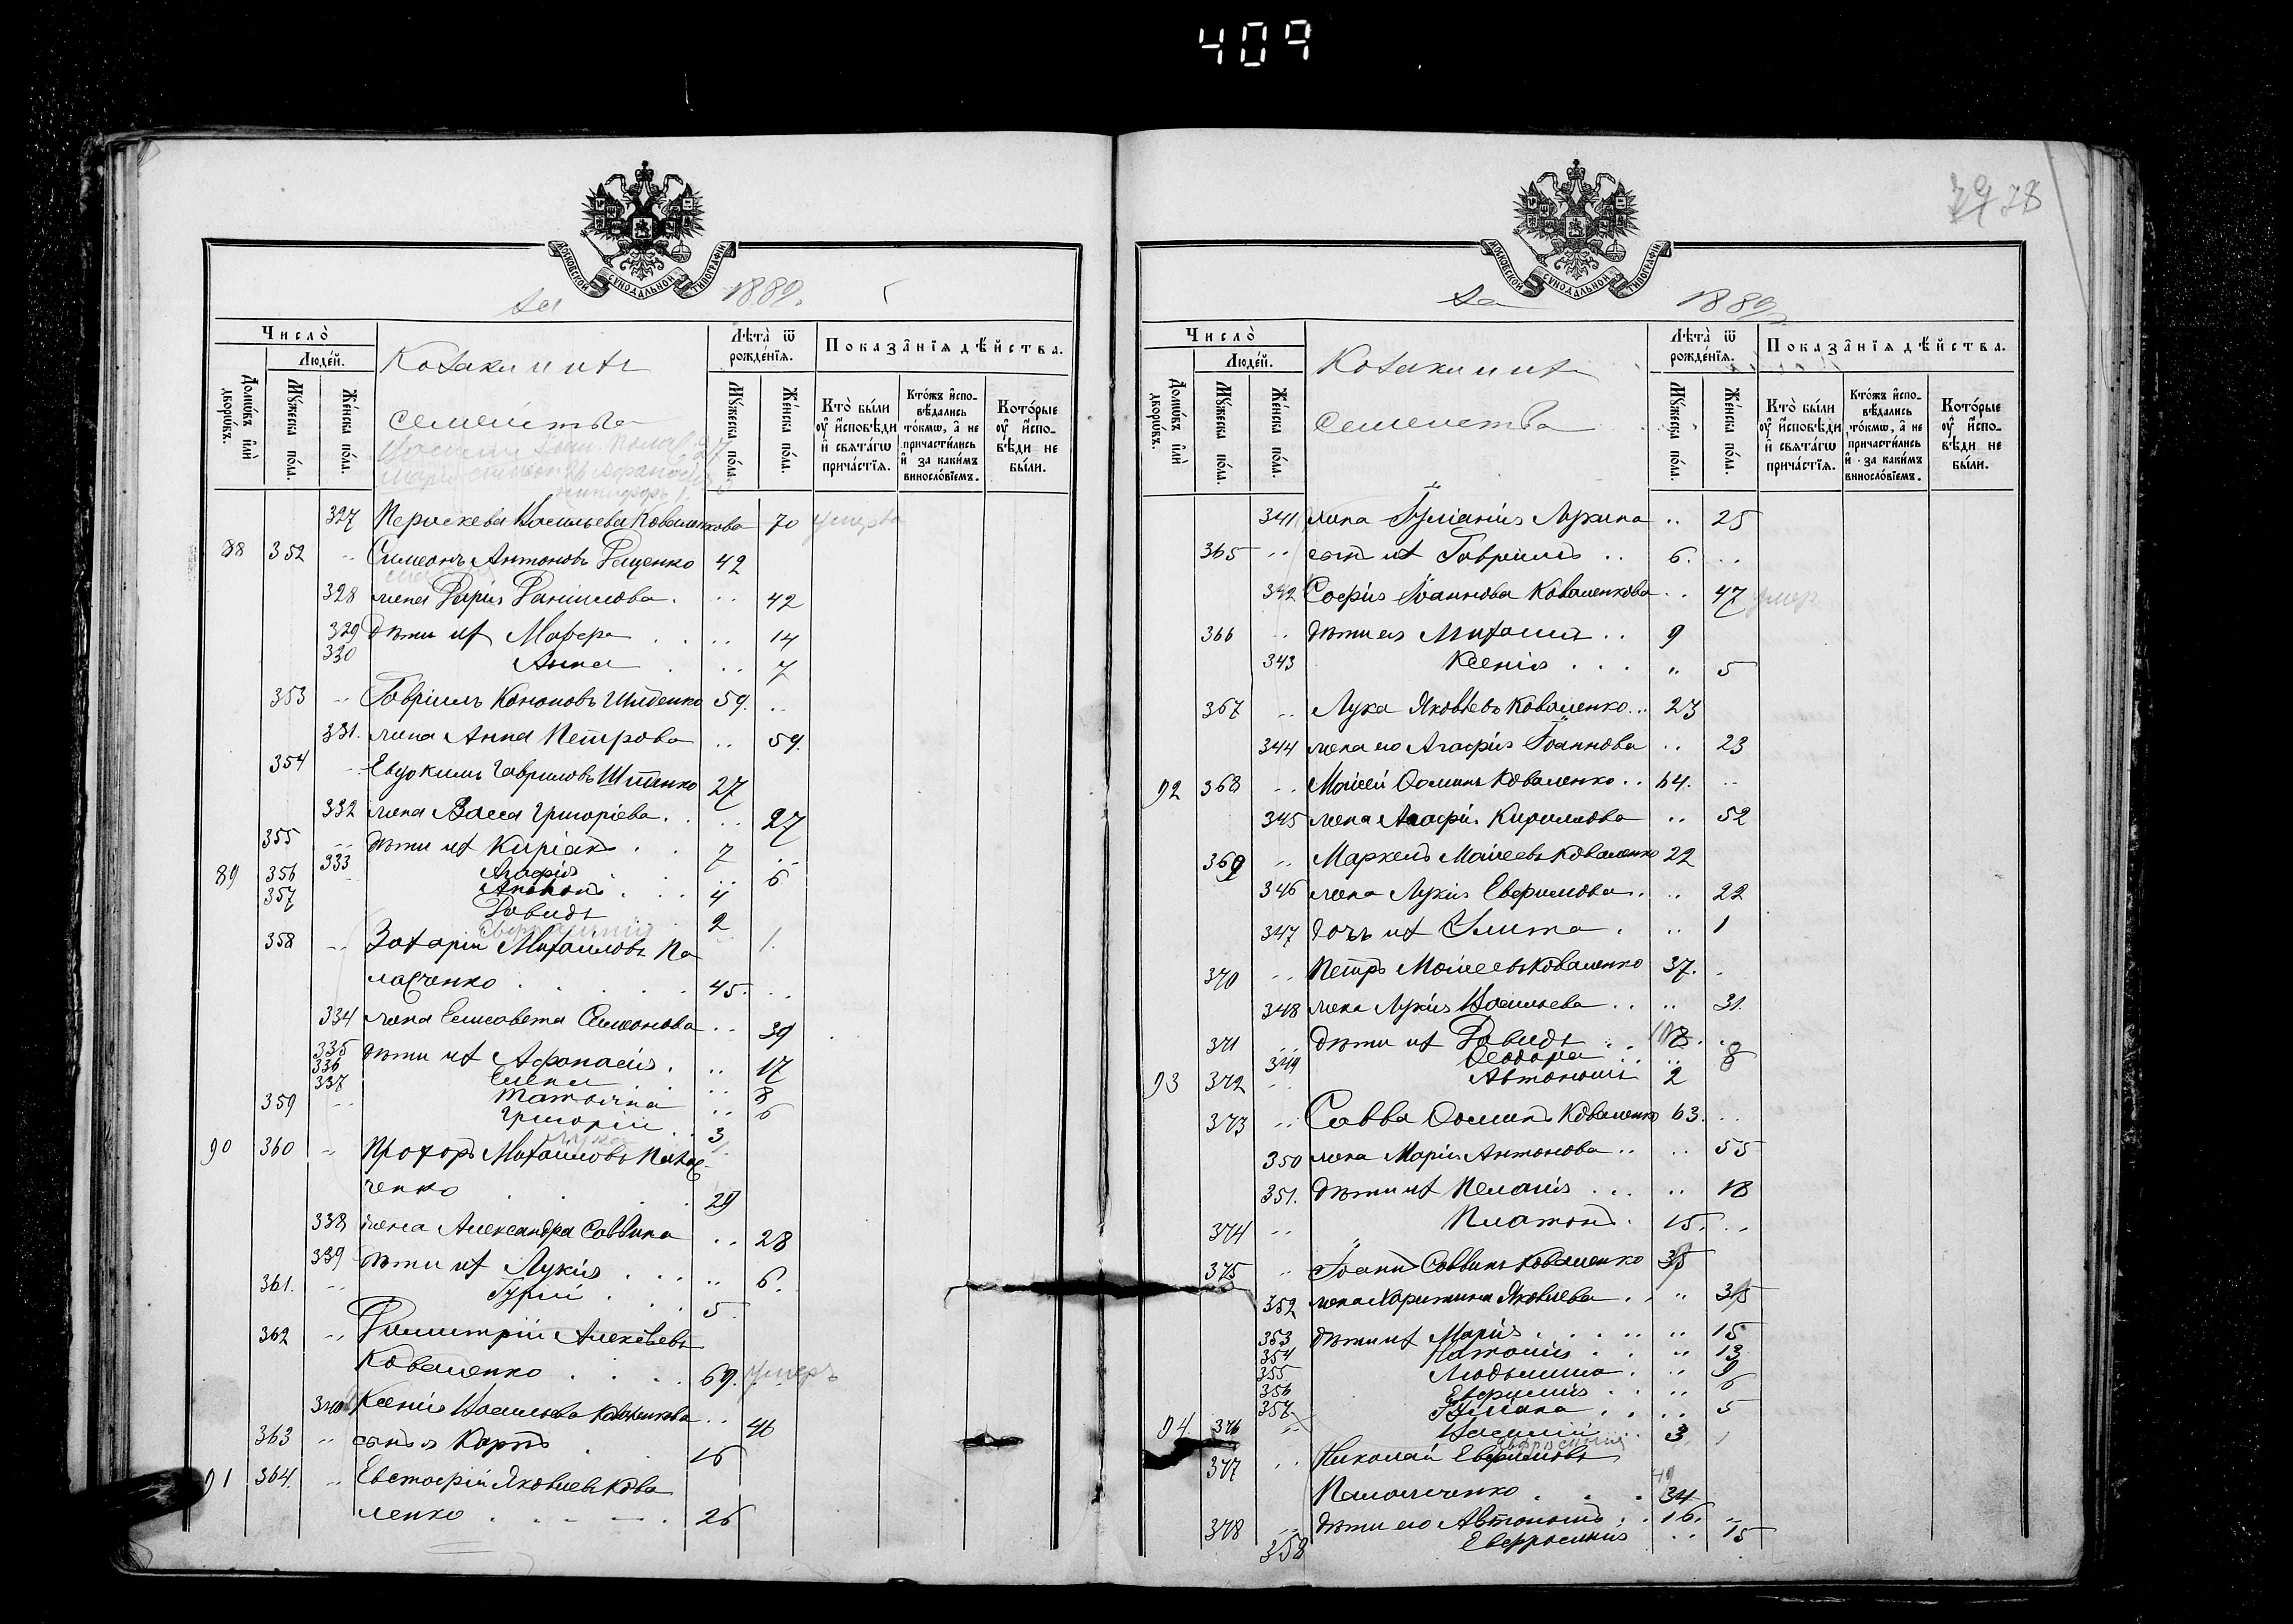 409
МОСКОВСКОЙ СѴНОДАЛЬНОЙ ТИПОГРАФІИ
за 1889.
Число̀
Людéй.
Домѡ́въ и҆лѝ дворѡ́въ.
Мꙋ́жеска по́ла.
Же́нска по́ла.
Козаки и ихъ
семейства
Лѣта̀ ѿ рожде́нїѧ.
Мꙋ́жеска по́ла.
Же́нска по́ла.
Показа̑нїѧ дѣ́йства.
Кто̀ бы́ли ᲂу҆ и҆сповѣди и҆ свѧта́гѡ прича́стїѧ.
Кто́жъ и҆спо-вѣдались то́кмѡ, а҆ не причасти́лись и҆ за каки́мъ винослові́емъ.
Кото́рые ᲂу҆ и҆спо-вѣди не бы́ли.
327 Параскева Васильева Коваленкова 70 умерла
88 352 Симеонъ Антоновъ Даценко 42
328 жена Дарія Даніилова 42
329 дѣти ихъ Мавра 14
330 Анна 7
353 Гавріилъ Кононовъ 59
331. жена Анна Петрова 59.
354 Евдокимъ Гавриловъ 27
332 жена Васса Григоріева 27
355 дѣти ихъ Киріакъ 7
333 Агафія 6
89 356 4
357 Давидъ 2
Евфросинія 1.
358 Захарій Михаиловъ Па
ласченко 45.
334 жена Елисавета Симеонова 39
335 дѣти ихъ Афанасія 17
336 Елена 8
337 Татьяна 6
359 Григорій 3
90 360 Прохоръ Михаиловъ Палас
ченко 29
338 жена Александра Саввина 28
339 дѣти ихъ Лукія 6.
361. Гурій 5
362 Димитрій Алексѣевъ
Коваленко 69. умеръ
340 Ксенія Васильева Коваленкова 46
363 сынъ я Карпъ 16
91 364. Евстафій Яковлевъ Кова
ленко 26
78
МОСКОВСКОЙ СѴНОДАЛЬНОЙ ТИПОГРАФІИ
за 1889
Число̀
Людéй.
Домѡ́въ и҆лѝ дворѡ́въ.
Мꙋ́жеска по́ла.
Же́нска по́ла.
Козаки и ихъ
семейства
Лѣта̀ ѿ рожде́нїѧ.
Мꙋ́жеска по́ла.
Же́нска по́ла.
Показа̑нїѧ дѣ́йства.
Кто̀ бы́ли ᲂу҆ и҆сповѣди и҆ свѧта́гѡ прича́стїѧ.
Кто́жъ и҆спо-вѣдались то́кмѡ, а҆ не причасти́лись и҆ за каки́мъ винослові́емъ.
Кото́рые ᲂу҆ и҆спо-вѣди не бы́ли.
341 жена Іуліанія Лукина 25
365 сынъ ихъ Гавріилъ 6.
342 Софія Іоаннова Коваленкова 47 умер
366 дѣти ея Михаилъ 9
343 Ксенія 5
367 Лука Яковлевъ Коваленко 23
344 жена его Агафія Іоаннова 23
92 368 Моисей Ѳоминъ Коваленко 64.
345 жена Агафія Кириллова 52
369 Маркелъ Моисеевъ Коваленко 22
346 жена Лукія Евфимова 22
347 дочь ихъ Улита 1
370 Петръ Моисеевъ Коваленко 37.
348 жена Лукія Васильева 31.
371 дѣти ихъ Давидъ
349 Ѳеодора 8
93 372 Автономъ 2
373 Савва Ѳоминъ Коваленко 63.
350 жена Марія Антонова 55
351. дѣти ихъ Пелагія 18
374 Платонъ 15.
375 Іоаннъ Саввинъ Коваленко 35
352 жена Харитина Яковлева 35
353 дѣти ихъ Марія 15
354 Наталія 13
355 Людмила 9
356 Евфимія 6
357 Іуліана 5
94. 376 Василій 3
Евфросинія 1
377 Николай Евфимовъ
Паласченко 34
378 дѣти его Автономъ 16.
358 Евфросинія 15